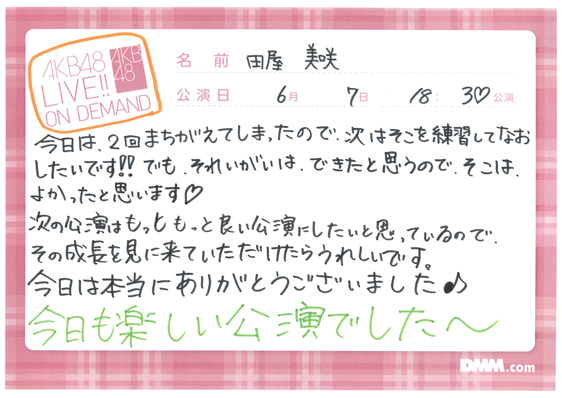 AKB48
LIVE!!
ON DEMAND
AKB
48
名前 田屋 美咲
公演日 6月 7日 18:30♡公演
今日は、2回まちがえてしまったので、次はそこを練習してなお
したいです!! でも、それいがいは、できたと思うので、そこは、
よかったと思います♡
次の公演はもっともっと良い公演にしたいと思っているので、
その成長を見に来ていただけたらうれしいです。
今日は本当にありがとうございました♪
今日も楽しい公演でした〜
DMM.com